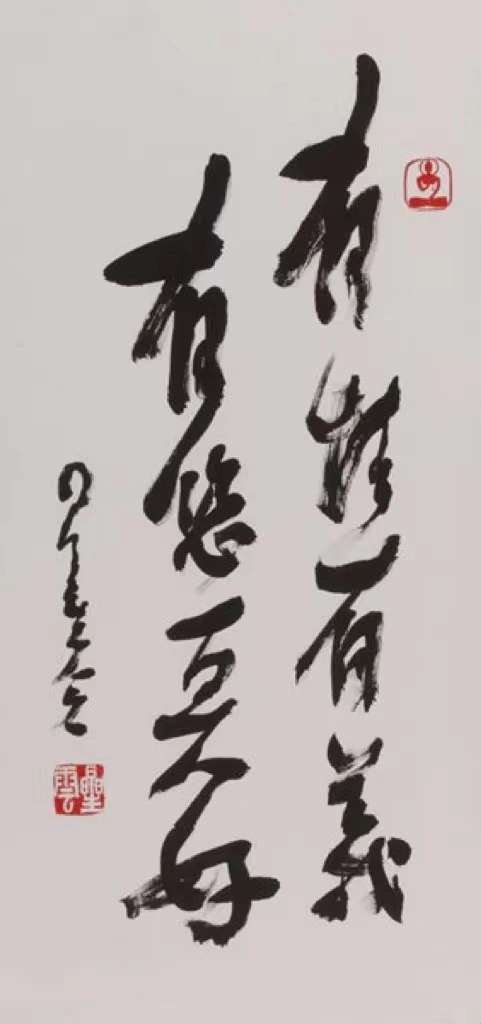 有情有義
有您更好
星雲